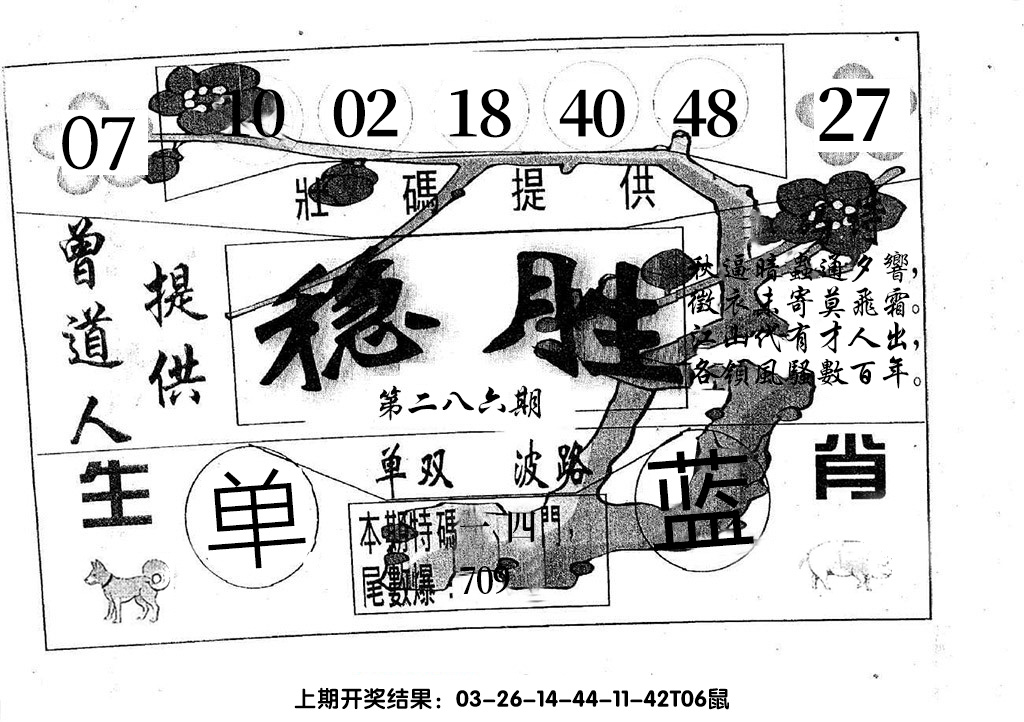 07 10 02 18 40 48 27
壯 碼 提 供
特
曾道人
提供
稳胜
第二八六期
秋逼暗蟲通夕響,
徵衣未寄莫飛霜。
江山代有才人出,
各領風騷數百年。
单双 波路
生 肖
单
蓝
本期特碼一、四門,
尾數爆:709
上期开奖结果：03-26-14-44-11-42T06鼠